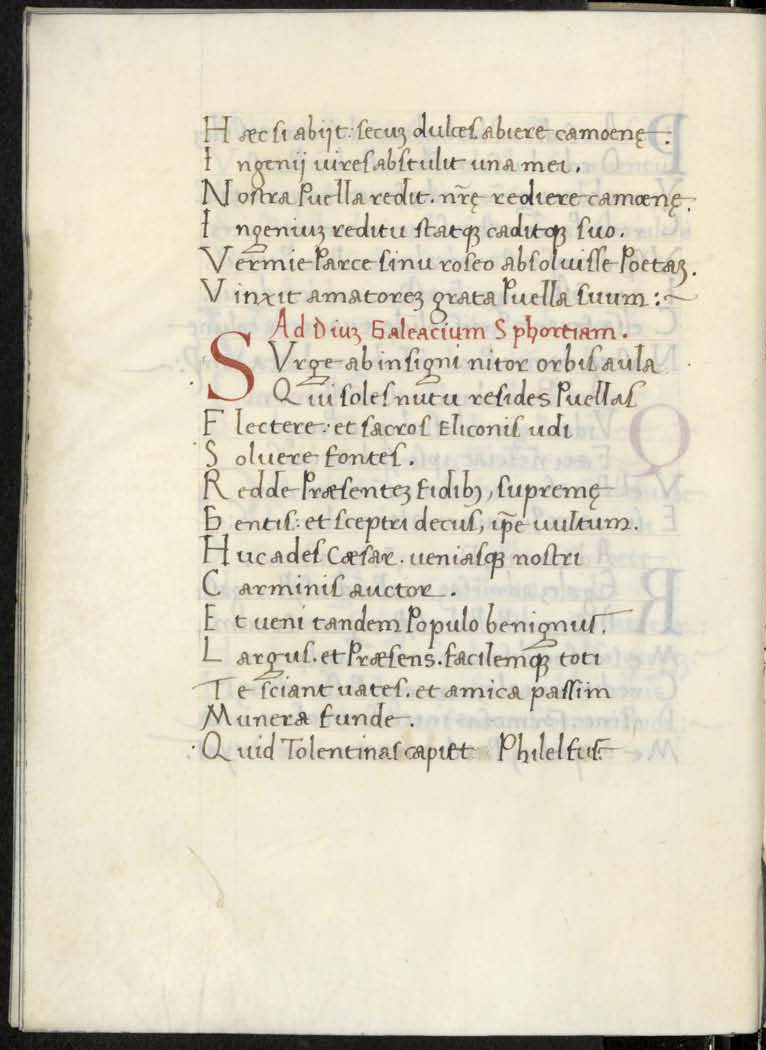 Hæc si abijt: secuꝫ dulces abiere camoenę.
Ingenij uires abstulit una mei.
Nostra Puella redit. nr̃ę rediere camœnę.
Ingeniuꝫ reditu statqꝫ caditqꝫ suo.
Vermie Parce sinu roseo absoluisse Poetaꝫ.
Vinxit amatoreꝫ grata Puella suum:~
Ad Diuꝫ Galeacium Sphortiam.
SVrge ab insigni nitor orbis aula
Qui soles nutu resides Puellas
Flectere: et sacros Eliconis udi
Soluere fontes.
Redde Præsenteꝫ fidibꝫ, supremę
Gentis: et sceptri decus, ip̄e uultum.
Huc ades Cæsar. ueniasqꝫ nostri
Carminis auctor.
Et ueni tandem Populo benignus.
Largus. et Præsens. facilemqꝫ toti
Te sciant uates. et amica passim
Munera funde.
Quid Tolentinas capiet Philelfus